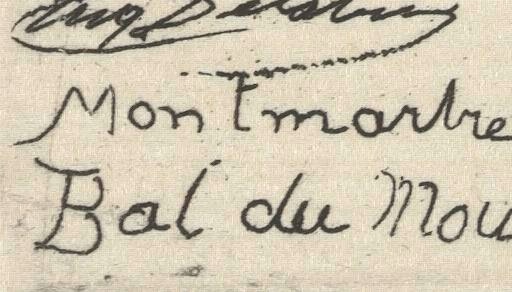 Montmartre
Bal du Mou